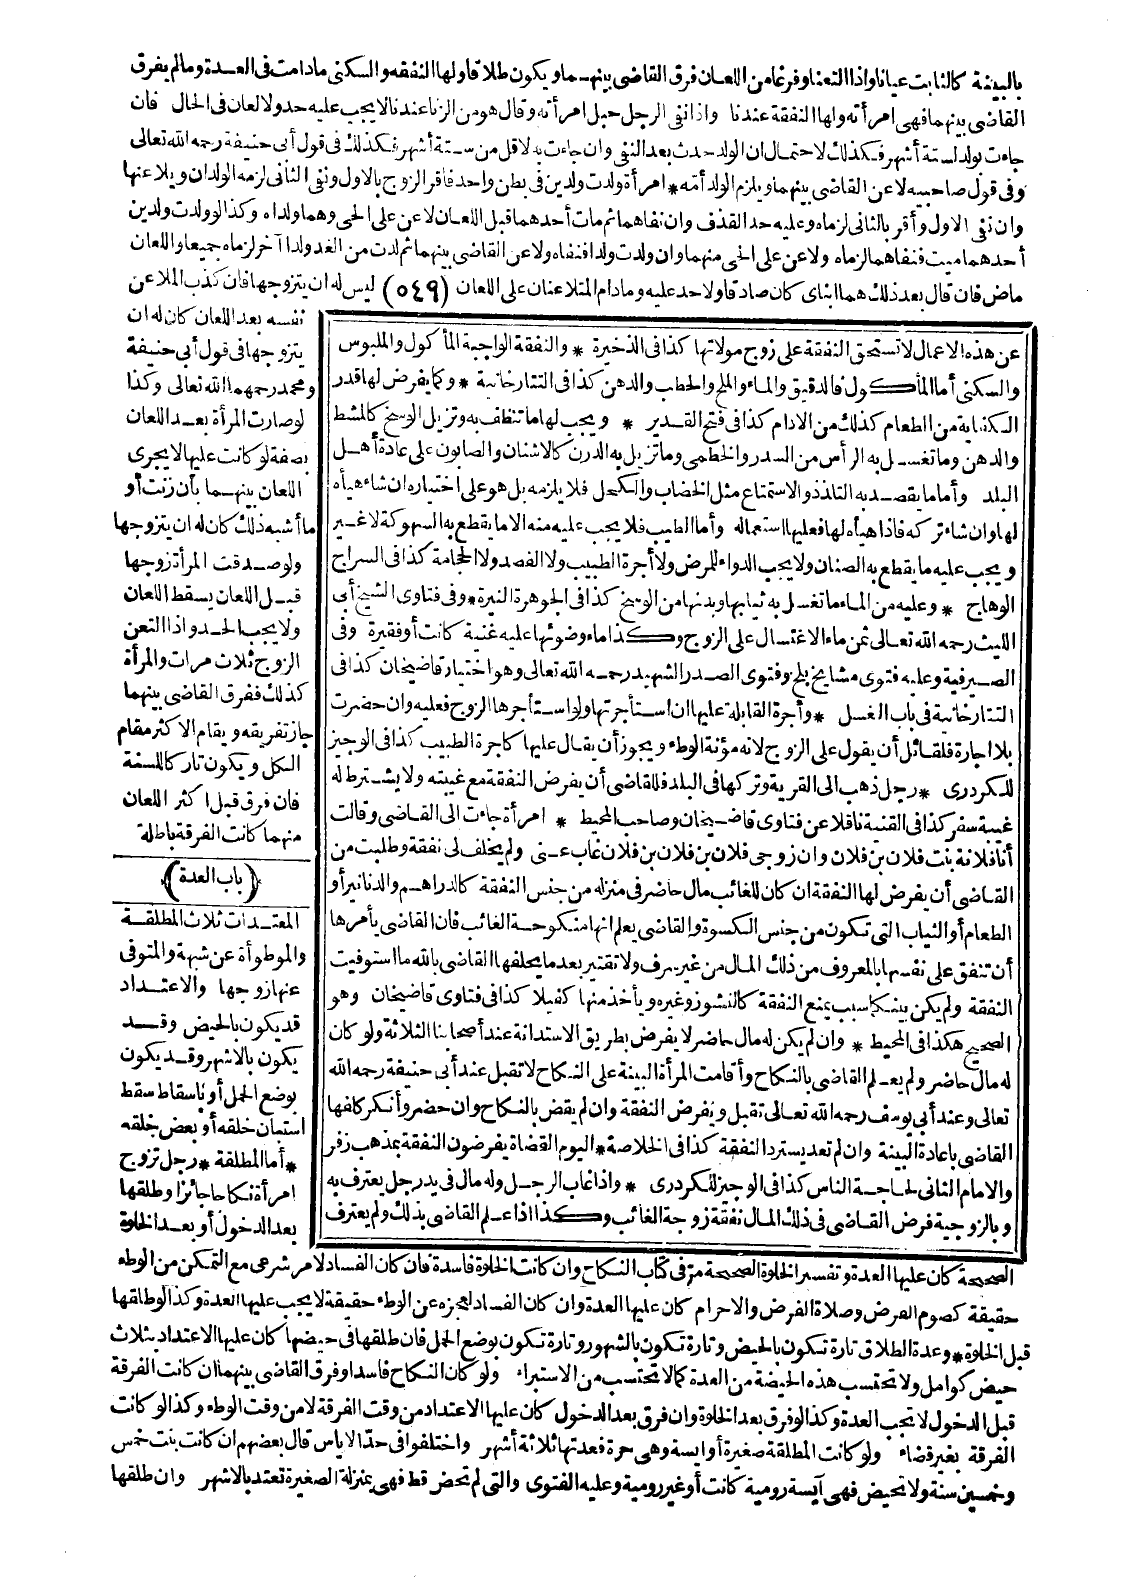 بالبينة كالثابت عيانا واذا التعنا وفرغا من اللعان فرق القاضى بينهما ويكون طلاقا ولها النفقه والسكنى مادامت فى العدة ومالم يفرق
القاضى بينهما فهى امرأته ولها النفقة عندنا واذا نفى الرجل حبل امرأته وقال هو من الزنا عندنا لا يجب عليه حد ولا لعان فى الحال فان
جاءت بولد لستة أشهر فكذلك لاحتمال ان الولد حدث بعد النفى وان جاءت به لاقل من ستة أشهر فكذلك فى قول أبى حنيفة رحمه الله تعالى
وفى قول صاحبيه لاعن القاضى بينهما ويلزم الولد أمه * امرأة ولدت ولدين فى بطن واحد فاقر الزوج بالاول ونفى الثانى لزمه الولدان ويلاعنها
وان نفى الاول وأقر بالثانى لزماه وعليه حد القذف وان نفاهما ثم مات أحدهما قبل اللعان لاعن على الحى وهما ولداه وكذا لو ولدت ولدين
أحدهما ميت فنفاهما لزماه ولاعن على الحى منهما وان ولدت ولدا فنفاه ولاعن القاضى بينهما ثم ولدت من الغد ولدا آخر لزماه جميعا واللعان
ماض فان قال بعد ذلك هما ابناى كان صادقا ولا حد عليه ومادام المتلاعنان على اللعان (٥٤٩) ليس له ان يتزوجها فان كذب الملاعن
نفسه بعد اللعان كان له ان
يتزوجها فى قول أبى حنيفة
ومحمد رحمهما الله تعالى وكذا
لو صارت المرأة بعد اللعان
بصفة لو كانت عليها لا يجرى
اللعان بينهما بأن زنت أو
ما أشبه ذلك كان له ان يتزوجها
ولو صدقت المرأة زوجها
قبل اللعان يسقط اللعان
ولا يجب الحد واذا التعن
الزوج ثلاث مرات والمرأة
كذلك ففرق القاضى بينهما
جاز تفريقه ويقام الاكثر مقام
الكل ويكون تاركا للسنة
فان فرق قبل اكثر اللعان
منهما كانت الفرقة باطلة
(باب العدة)
المعتدات ثلاث المطلقة
والموطوأة عن شبهة والمتوفى
عنها زوجها والاعتداد
قد يكون بالحيض وقد
يكون بالاشهر وقد يكون
بوضع الحمل أو باسقاط سقط
استبان خلقه أو بعض خلقه
* أما المطلقة * رجل تزوج
امرأة نكاحا جائزا وطلقها
بعد الدخول أو بعد الخلوة
عن هذه الاعمال لا تستحق النفقة على زوج مولاتها كذا فى الذخيرة * والنفقة الواجبة المأكول والملبوس
والسكنى أما المأكول فالدقيق والماء والملح والحطب والدهن كذا فى التتارخانية * وكما يفرض لها قدر
الكفاية من الطعام كذلك من الادام كذا فى فتح القدير * ويجب لها ما تنظف به وتزيل الوسخ كالمشط
والدهن وما تغسل به الرأس من السدر والخطمى وما تزيل به الدرن كالاشنان والصابون على عادة أهل
البلد وأما ما يقصد به التلذذ والاستمتاع مثل الخضاب والكحل فلا يلزمه بل هو على اختياره ان شاء هيأه
لها وان شاء تركه فاذا هيأه لها فعليها استعماله وأما الطيب فلا يجب عليه منه الا ما يقطع به السهوكة لا غير
ويجب عليه ما يقطع به الصنان ولا يجب الدواء للمرض ولا أجرة الطبيب ولا الفصد ولا الحجامة كذا فى السراج
الوهاج * وعليه من الماء ما تغسل به ثيابها وبدنها من الوسخ كذا فى الجوهرة النيرة * وفى فتاوى الشيخ أبى
الليث رحمه الله تعالى ثمن ماء الاغتسال على الزوج وكذا ماء وضوئها عليه غنية كانت أو فقيرة وفى
الصيرفية وعليه فتوى مشايخ بلخ وفتوى الصدر الشهيد رحمه الله تعالى وهو اختيار قاضيخان كذا فى
التتارخانية فى باب الغسل * وأجرة القابلة عليها ان استأجرتها ولو استأجرها الزوج فعليه وان حضرت
بلا اجارة فلقائل أن يقول على الزوج لانه مؤنة الوطء ويجوز أن يقال عليها كاجرة الطبيب كذا فى الوجيز
للكردرى * رجل ذهب الى القرية وتركها فى البلد فللقاضى أن يفرض النفقة مع غيبته ولا يشترط له
غيبة سفر كذا فى القنية ناقلا عن فتاوى قاضيخان وصاحب المحيط * امرأة جاءت الى القاضى وقالت
أنا فلانة بنت فلان بن فلان وان زوجى فلان بن فلان بن فلان غاب عنى ولم يخلف لى نفقة وطلبت من
القاضى أن يفرض لها النفقة ان كان للغائب مال حاضر فى منزله من جنس النفقة كالدراهم والدنانير أو
الطعام أو الثياب التى تكون من جنس الكسوة والقاضى يعلم انها منكوحة الغائب فان القاضى يأمرها
أن تنفق على نفسها بالمعروف من ذلك المال من غير سرف ولا تقتير بعد ما يحلفها القاضى بالله ما استوفيت
النفقة ولم يكن بينكما سبب يمنع النفقة كالنشوز وغيره ويأخذ منها كفيلا كذا فى فتاوى قاضيخان وهو
الصحيح هكذا فى المحيط * وان لم يكن له مال حاضر لا يفرض بطريق الاستدانة عند أصحابنا الثلاثة ولو كان
له مال حاضر ولم يعلم القاضى بالنكاح وأقامت المرأة البينة على النكاح لا تقبل عند أبى حنيفة رحمه الله
تعالى وعند أبى يوسف رحمه الله تعالى تقبل ويفرض النفقة وان لم يقض بالنكاح وان حضر وأنكر كلفها
القاضى باعادة البينة وان لم تعد يسترد النفقة كذا فى الخلاصة * اليوم القضاة يفرضون النفقة بمذهب زفر
والامام الثانى لحاجة الناس كذا فى الوجيز للكردرى * واذا غاب الرجل وله مال فى يد رجل يعترف به
وبالزوجية فرض القاضى فى ذلك المال نفقة زوجة الغائب وكذا اذا علم القاضى بذلك ولم يعترف
الصحيحة كان عليها العدة وتفسير الخلوة الصحيحة مر فى كتاب النكاح وان كانت الخلوة فاسدة فان كان الفساد لامر شرعى مع التمكن من الوطء
حقيقة كصوم الفرض وصلاة الفرض والاحرام كان عليها العدة وان كان الفساد لعجزه عن الوطء حقيقة لا يجب عليها العدة وكذا لو طلقها
قبل الخلوة * وعدة الطلاق تارة تكون بالحيض وتارة تكون بالشهور وتارة تكون بوضع الحمل فان طلقها فى حيضها كان عليها الاعتداد بثلاث
حيض كوامل ولا تحتسب هذه الحيضة من العدة كما لا تحتسب من الاستبراء ولو كان النكاح فاسدا وفرق القاضى بينهما ان كانت الفرقة
قبل الدخول لا تجب العدة وكذا لو فرق بعد الخلوة وان فرق بعد الدخول كان عليها الاعتداد من وقت الفرقة لا من وقت الوطء وكذا لو كانت
الفرقة بغير قضاء ولو كانت المطلقة صغيرة أو ايسة وهى حرة فعدتها ثلاثة أشهر واختلفوا فى حد الاياس قال بعضهم ان كانت بنت خمس
وخمسين سنة ولا تحيض فهى آيسة رومية كانت أو غير رومية وعليه الفتوى والتى لم تحض قط فهى بمنزلة الصغيرة تعتد بالاشهر وان طلقها